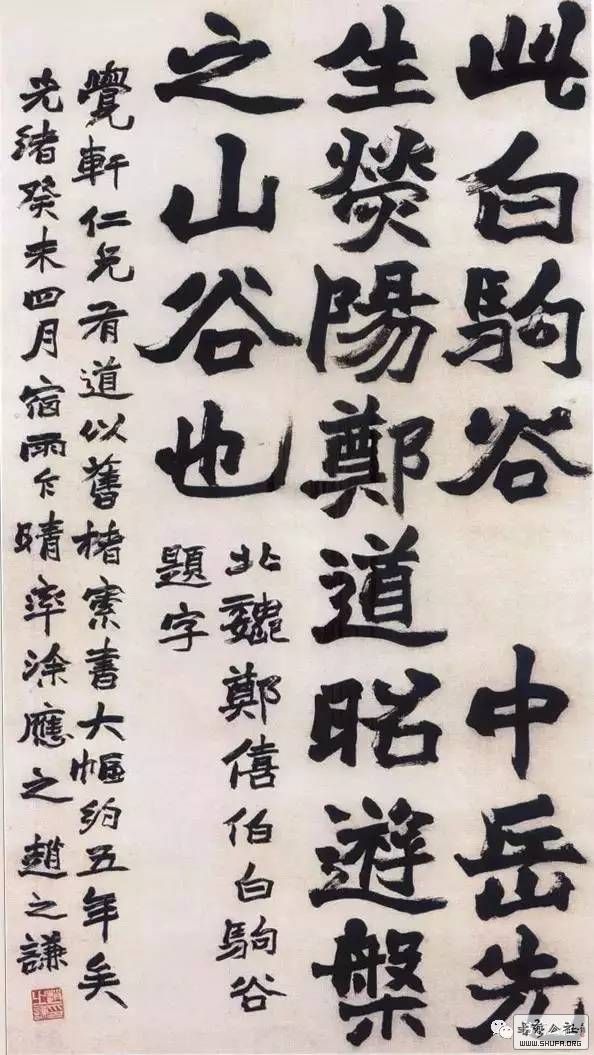 此白駒谷 中岳先
生熒陽鄭道昭遊槃
之山谷也
北魏鄭僖伯白駒谷
題字
覺軒仁兄有道以舊楮索書大幅約五年矣
光緒癸未四月宿雨乍晴率涂應之 趙之謙
书艺公社
WWW.SHUFA.ORG